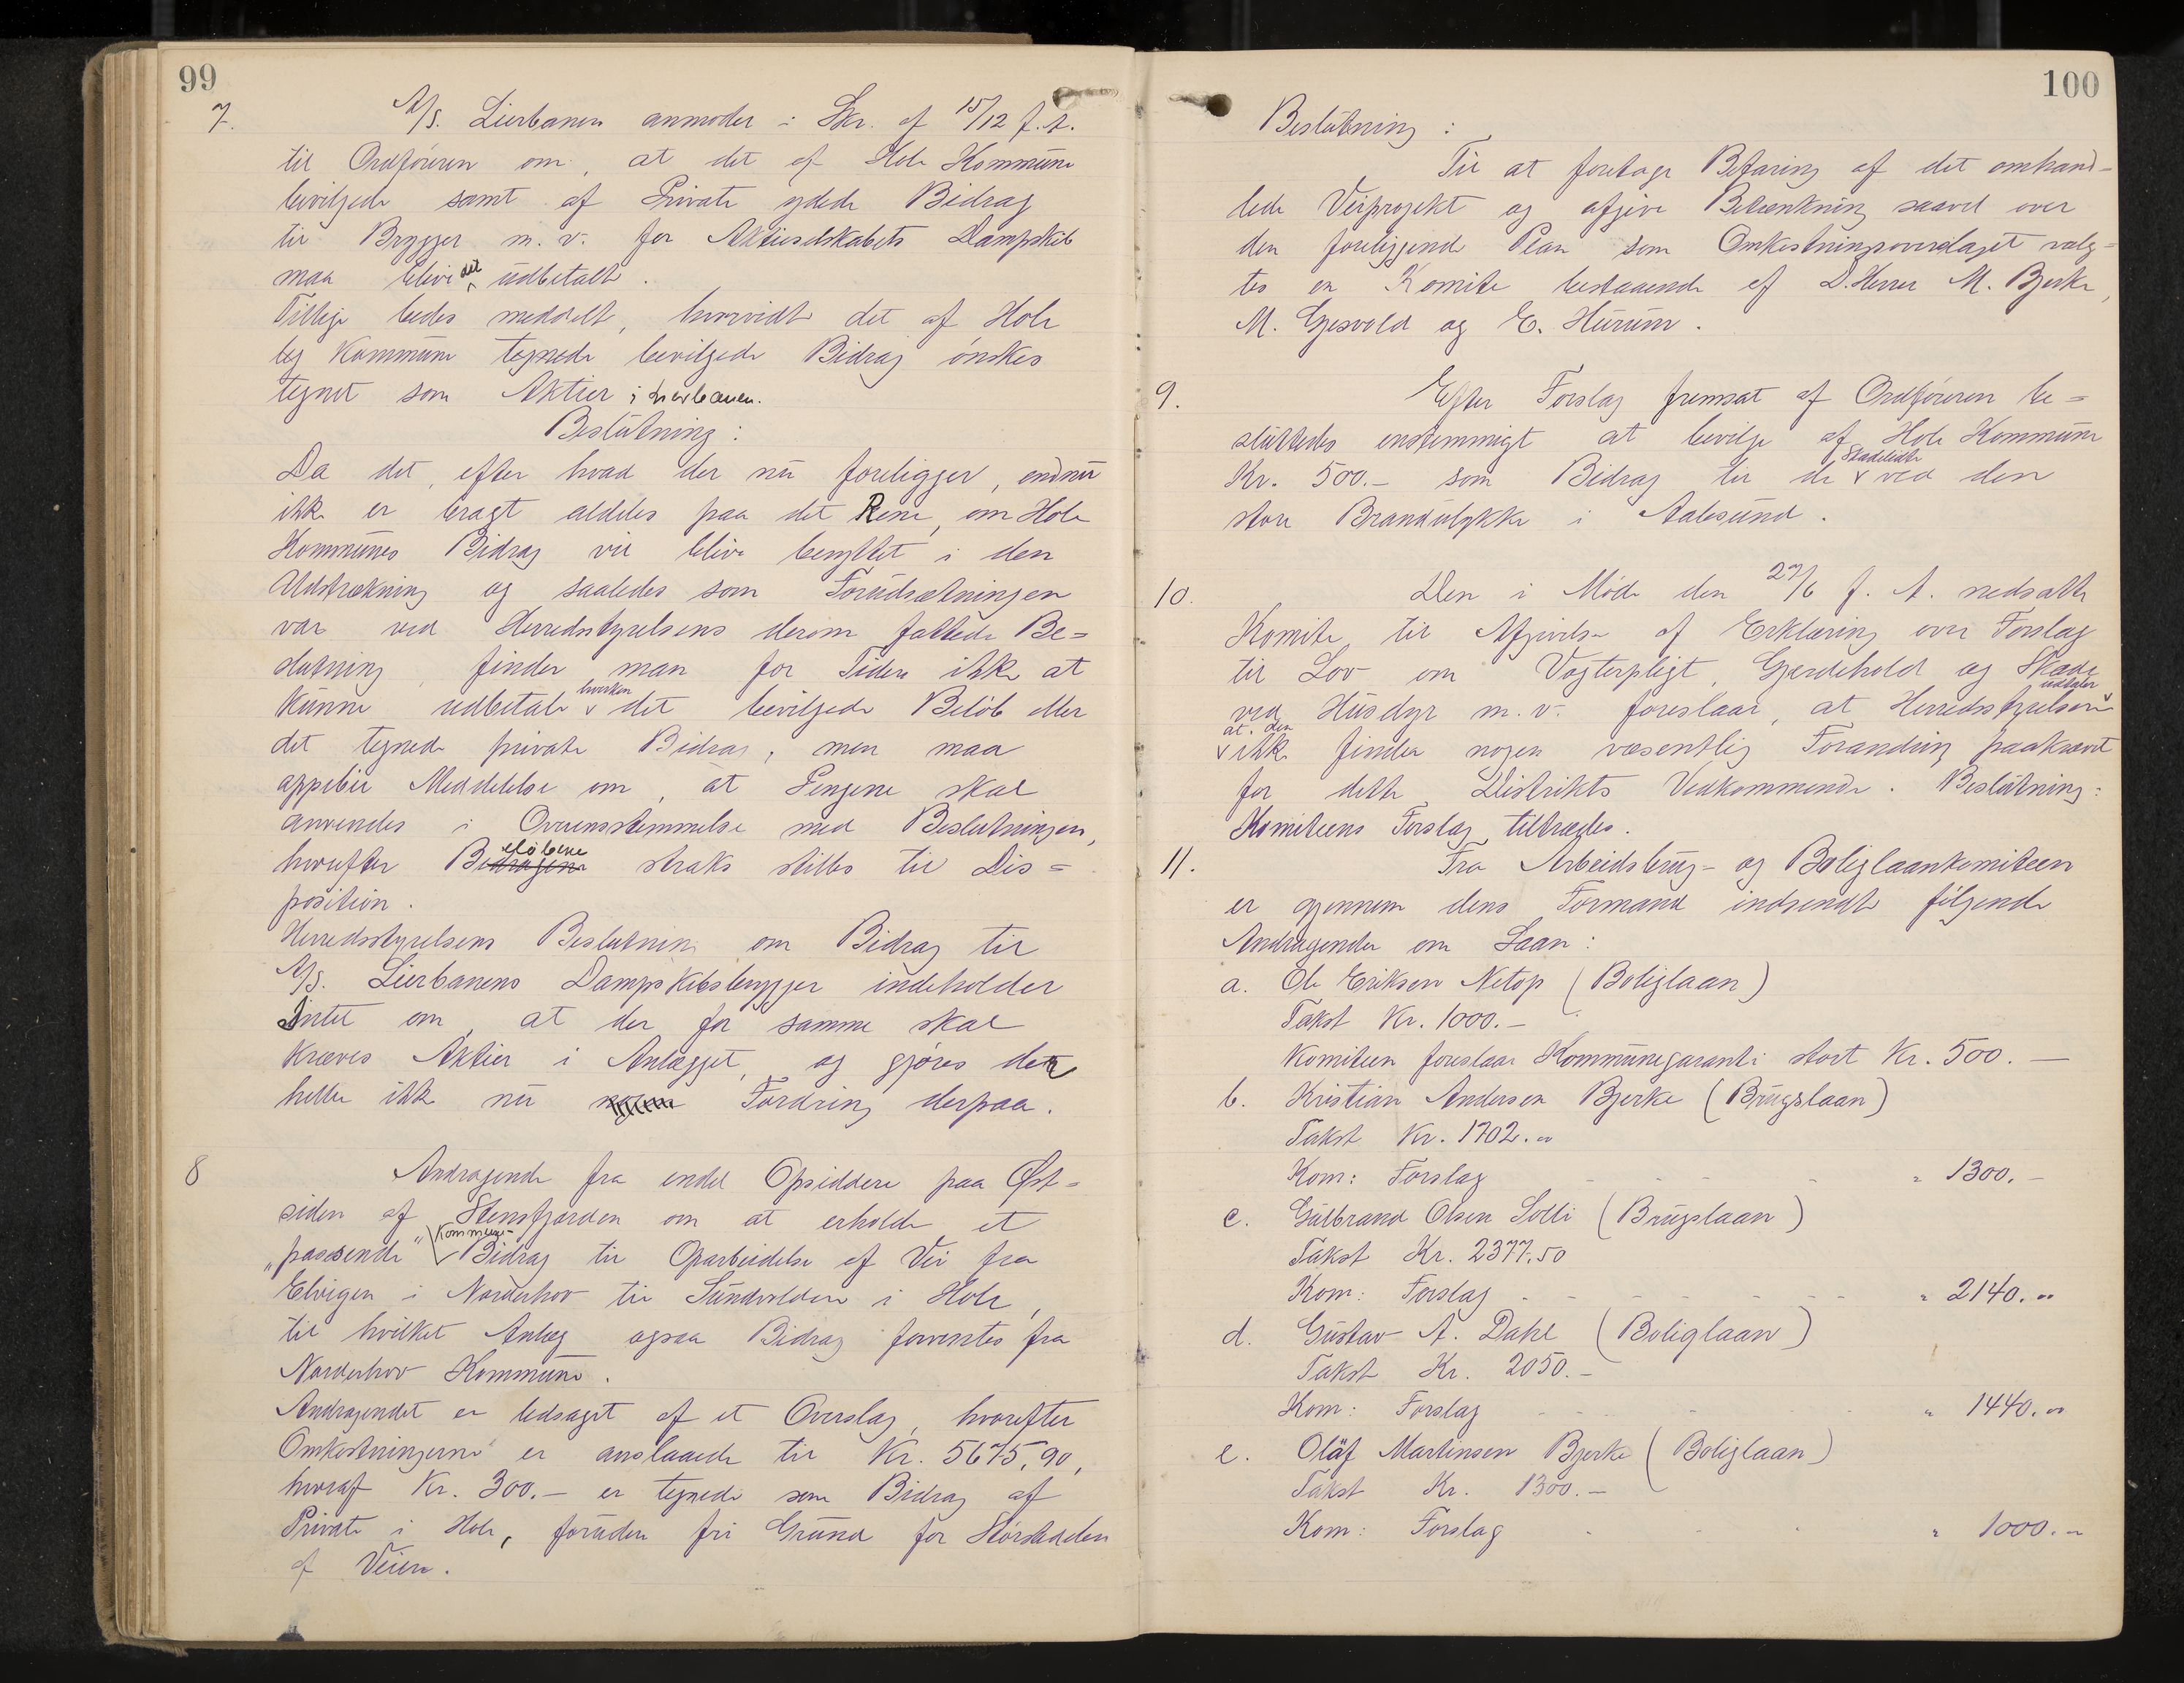 99
7. A/S. Lierbanen anmoder i Skr. af 15/12 f. A.
til Ordføreren om, at det af Hole Kommune
bevilgede samt af Private ydede Bidrag
til Brygger m. v. for Aktieselskabets Dampskib
maa blive det udbetalt.
Tillige bedes meddelt, hvorvidt det af Hole
og Kommune tegnede bevilgede Bidrag ønskes
tegnet som Aktier i Lierbanen.
Beslutning:
Da det, efter hvad der nu foreligger, endnu
ikke er bragt aldeles paa det Rene, om Hole
Kommunes Bidrag vil blive benyttet i den
Udstrækning og saaledes som Forudsætningen
var ved Herredsstyrelsens derom fattede Be=
slutning, finder man for Tiden ikke at
kunne udbetale hverken det bevilgede Beløb eller
det tegnede private Bidrag, men maa
oppebie Meddelelse om, at Pengene skal
anvendes i Overensstemmelse med Beslutningen,
hvorefter Beløbene straks stilles til Dis=
position.
Herredsstyrelsens Beslutning om Bidrag til
A/S. Lierbanens Dampskibsbrygger indeholder
Intet om, at der for samme skal
kræves Aktier i Anlægget, og gjøres der
heller ikke nu nogen Fordring derpaa.
8 Andragende fra endel Opsiddere paa Øst=
siden af Stensfjorden om at erholde et
„passende“ Kommune- Bidrag til Oparbeidelse af Vei fra
Elvigen i Norderhov til Sundvolden i Hole,
til hvilket Anlæg ogsaa Bidrag forventes fra
Norderhov Kommune.
Andragendet er ledsaget af et Overslag, hvorefter
Omkostningerne er anslaaede til Kr. 5675,90,
hvoraf Kr. 300.- er tegnede som Bidrag af
Private i Hole, foruden fri Grund for Størstedelen
af Veien.
100
Beslutning:
Til at foretage Befaring af det omhand=
lede Veiprojekt og afgive Betænkning saavel over
den foreliggende Plan som Omkostningsoverslaget valg=
tes en Komite bestaaende af D.Herrer M. Bjerke,
M. Gjesvold og E. Hurum.
9. Efter Forslag fremsat af Ordføreren be=
sluttedes enstemmigt at bevilge af Hole Kommune
Kr. 500.- som Bidrag til de Skadelidte ved den
store Brandulykke i Aalesund.
10. Den i Møde den 27/6 f. A. nedsatte
Komite til Afgivelse af Erklæring over Forslag
til Lov om Vogterpligt, Gjerdehold og Skade
ved Husdyr m. v. foreslaar, at Herredsstyrelsen udtaler
at den ikke finder nogen væsentlig Forandring paakrævet
for dette Distrikts Vedkommende. Beslutning:
Komiteens Forslag tiltrædes.
11. Fra Arbeidsbrug- og Boliglaankomiteen
er gjennem dens Formand indsendt følgende
Andragender om Laan:
a. Ole Eriksen Netop (Boliglaan)
Takst Kr. 1000.-
Komiteen foreslaar Kommunegaranti stort Kr. 500.-
b. Kristian Andersen Bjerke (Brugslaan)
Takst Kr. 1702.00
Kom: Forslag - - - - " 1300.-
c. Gulbrand Olsen Solli (Brugslaan)
Takst Kr. 2377,50
Kom: Forslag - - - - " 2140.00
d. Gustav A. Dahl (Boliglaan)
Takst Kr. 2050.-
Kom: Forslag - - - - " 1440.00
e. Olaf Martinsen Bjerke (Boliglaan)
Takst Kr. 1300.-
Kom: Forslag - - - " 1000.-